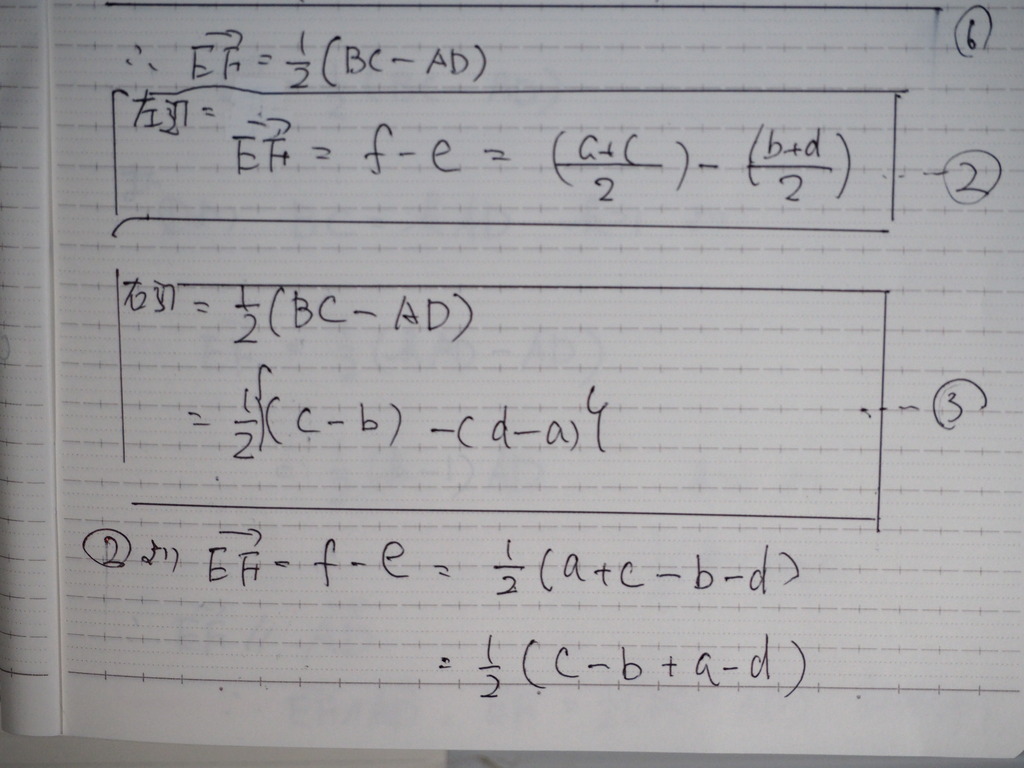 ⑥
∴ EF = 1/2 (BC - AD)
左辺 =
EF = f - e = (a+c / 2) - (b+d / 2) ... - ②
右辺 = 1/2 (BC - AD)
= 1/2 { (c - b) - (d - a) } ... - ③
②より EF = f - e = 1/2 (a + c - b - d)
= 1/2 (c - b + a - d)